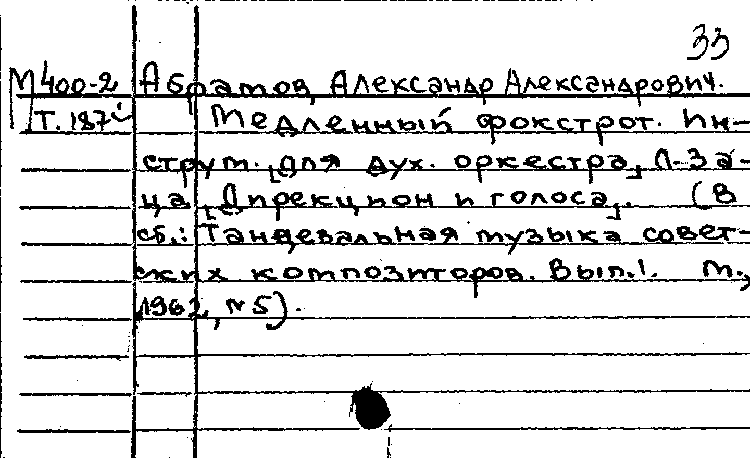 33
М400-2 Абрамов, Александр Александрович.
Т. 187 Медленный фокстрот. Ин-
струм. [для дух. оркестра] Л. За-
ца [Дирекцион и голоса]. (В
сб.: Танцевальная музыка совет-
ских композиторов. Вып. 1. М.,
1962, № 5).